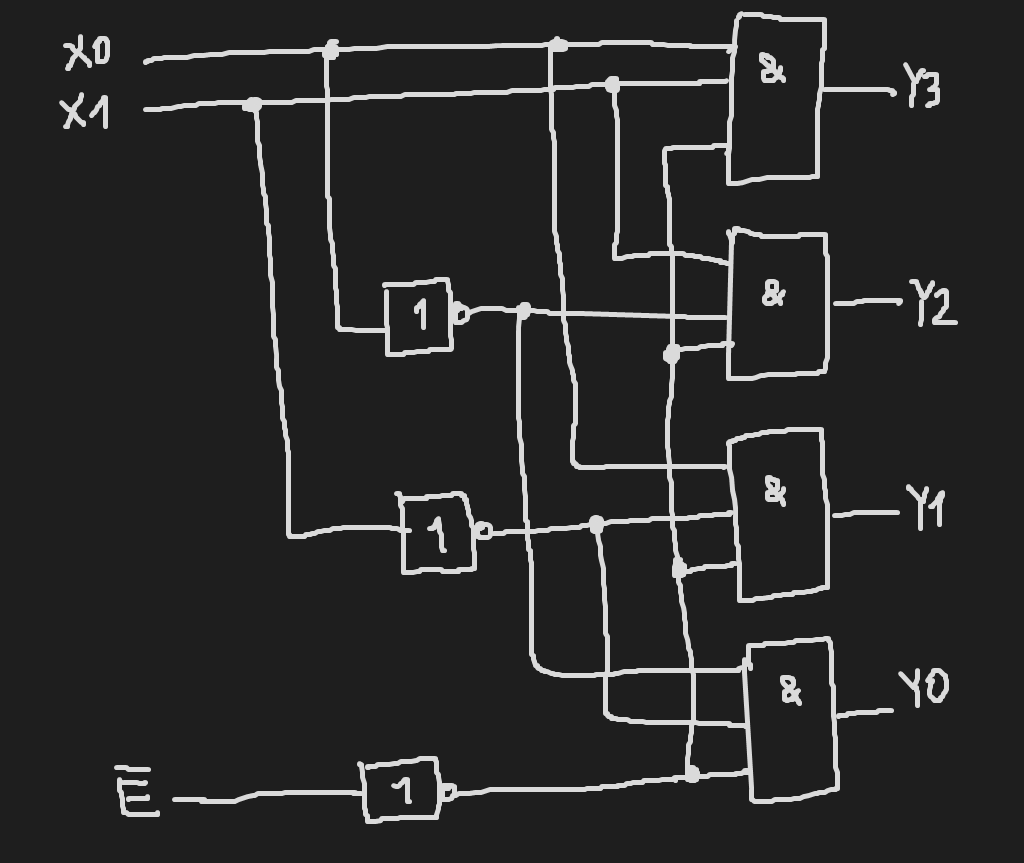 X0
X1
&
Y3
1
&
Y2
1
&
Y1
&
Y0
E̅
1